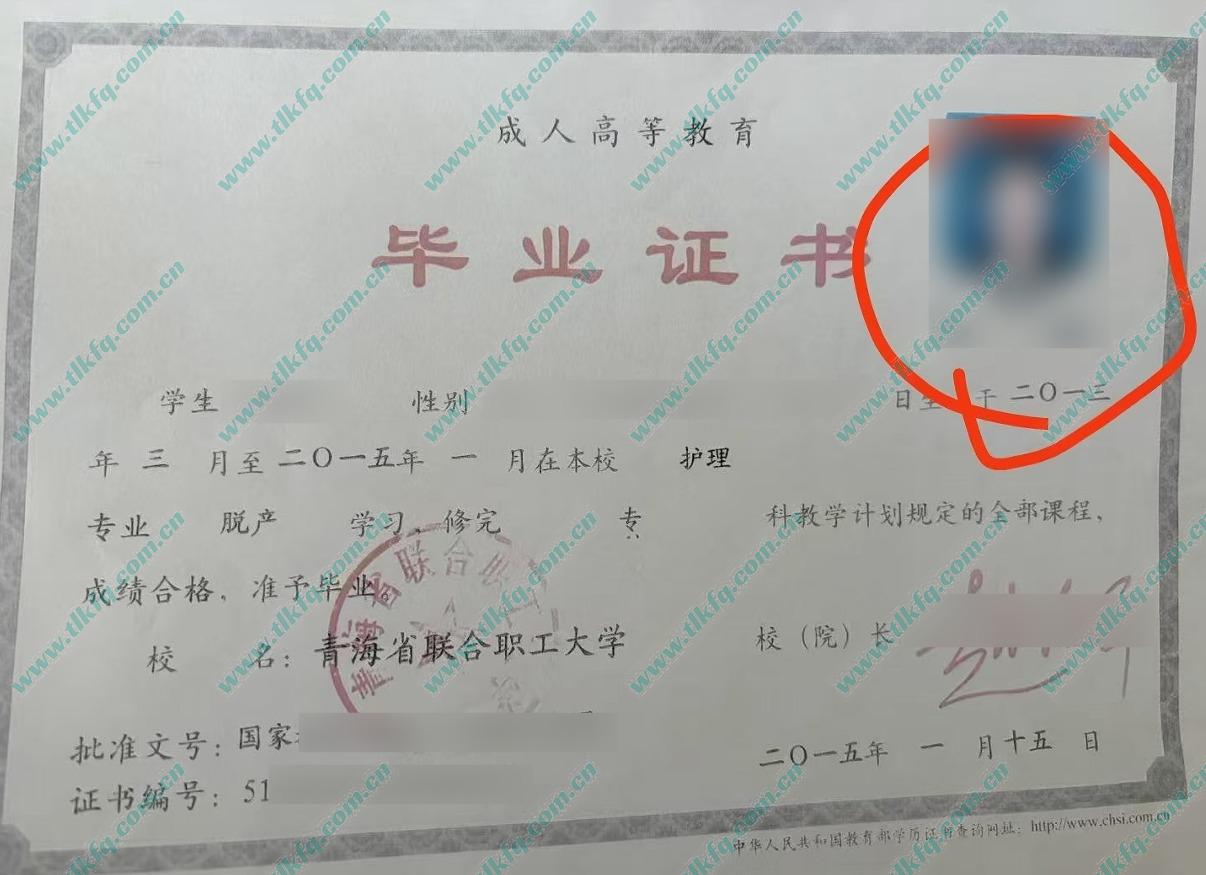 成人高等教育
毕业证书
学生 性别 日生 于 二〇一三
年 三 月至 二〇一五年 一 月在本校 护理
专业 脱产 学习、修完 专 科教学计划规定的全部课程,
成绩合格,准予毕业。
校 名: 青海省联合职工大学
校(院)长
批准文号: 国家
二〇一五年 一 月十五 日
证书编号: 51
中华人民共和国教育部学历证书查询网址: http://www.chsi.com.cn
青海省联合
www.tlkfq.com.cn